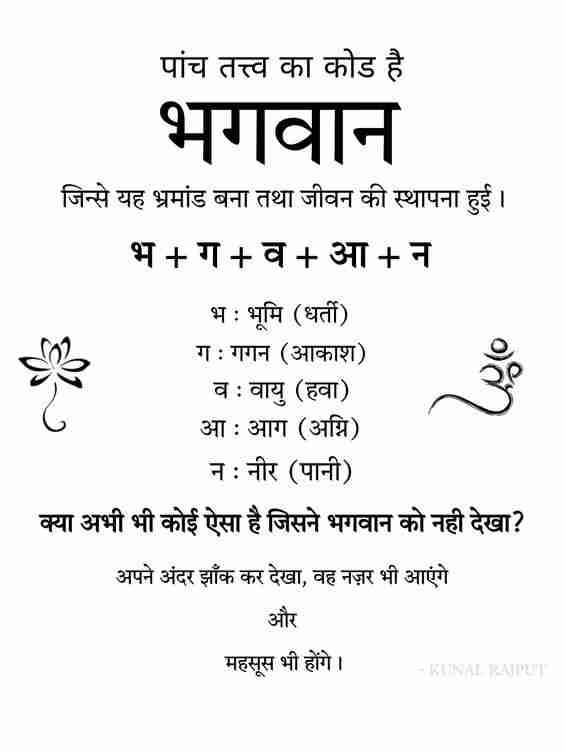 पांच तत्त्व का कोड है
भगवान
जिन्से यह भ्रमांड बना तथा जीवन की स्थापना हुई ।
भ + ग + व + आ + न
भ : भूमि (धर्ती)
ग : गगन (आकाश)
व : वायु (हवा)
आ : आग (अग्नि)
न : नीर (पानी)
क्या अभी भी कोई ऐसा है जिसने भगवान को नही देखा?
अपने अंदर झाँक कर देखा, वह नज़र भी आएंगे
और
महसूस भी होंगे ।
- KUNAL RAJPUT